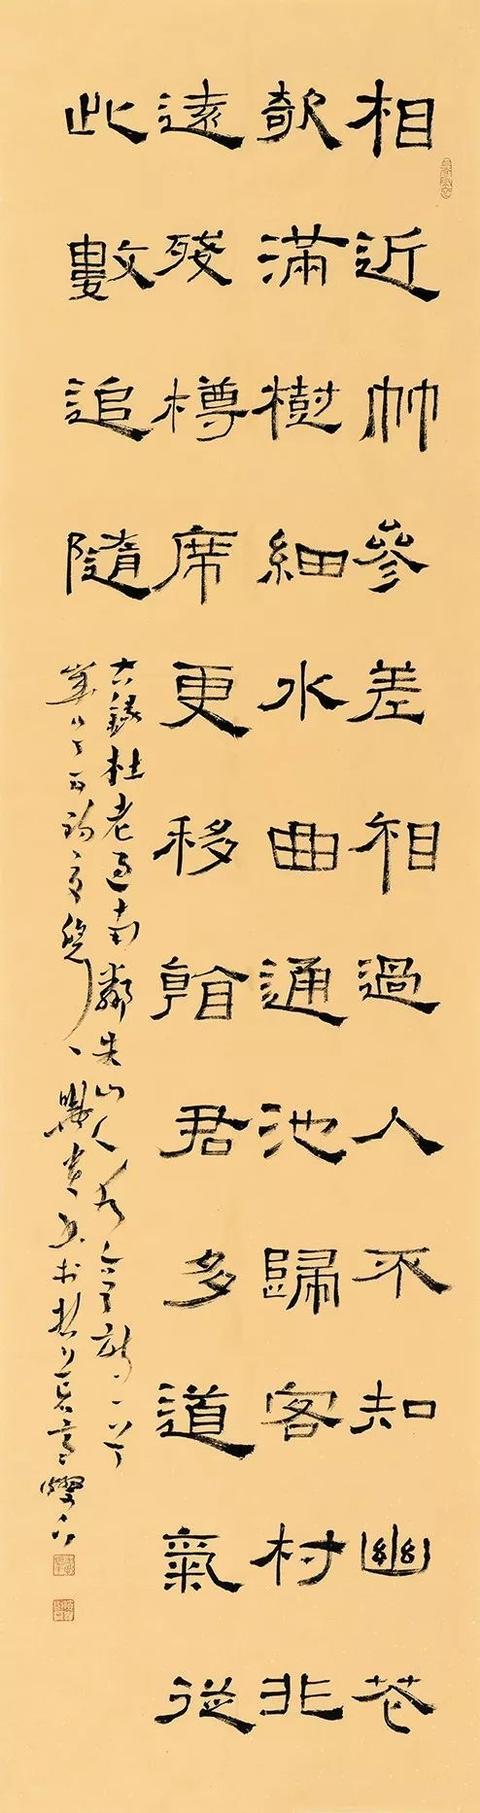 相近竹參差相過人不知幽花
欹滿樹細水曲通池歸客村非
遠殘樽席更移看君多道氣從
此數追隨
右錄杜老過南鄰朱山人水亭詩一首
歲次丁酉初夏